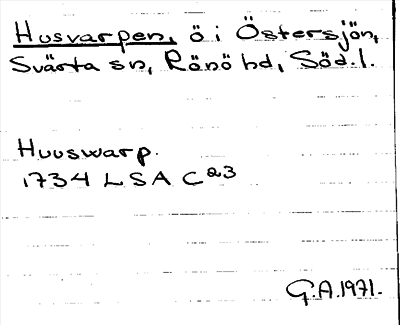 Husvarpen, ö i Östersjön,
Svärta sn, Rönö hd, Söd. l.
Huuswarp.
1734 LSA C23
G.A. 1971.